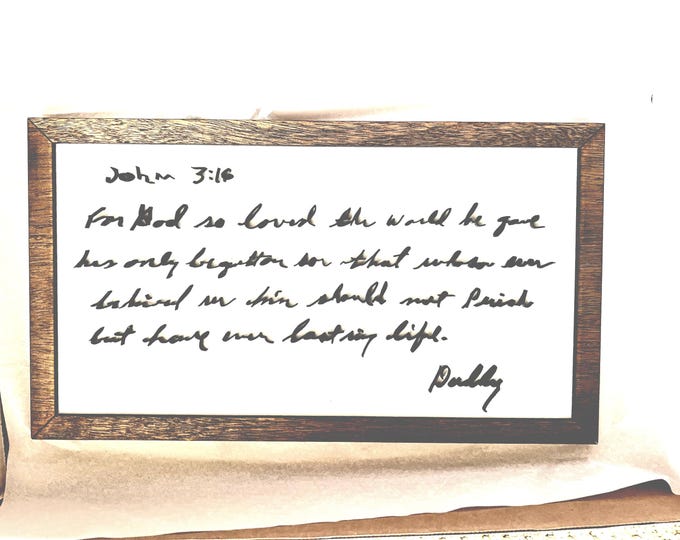 John 3:16
For God so loved the world he gave
his only begotton son that whoso ever
belived in him should not Perish
but have ever lasting life.
Daddy